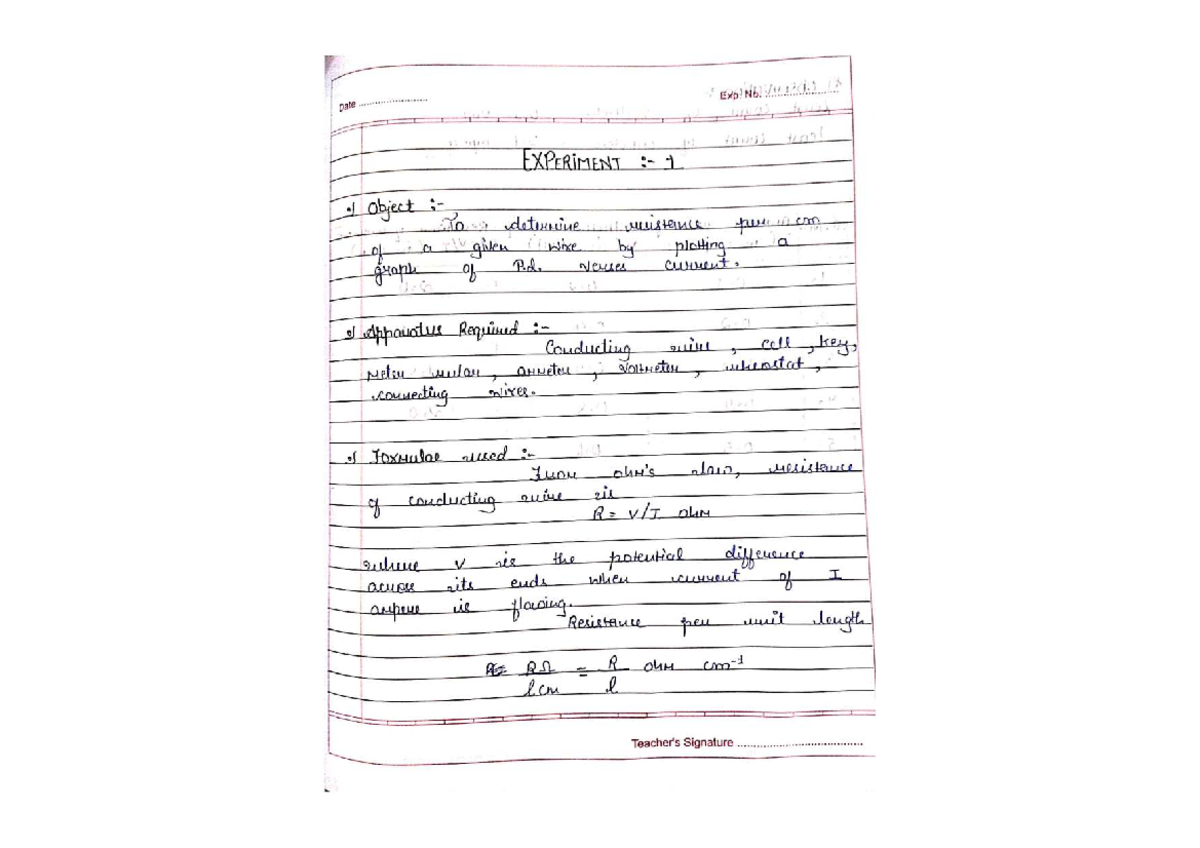 Date
Exp. No.
EXPERIMENT :- 1
Object :-
To determine resistance per cm
of a given wire by plotting a
graph of P.d. verses current.
Apparatus Required :-
Conducting wire, cell, key,
meter, ammeter, voltmeter, rheostat,
connecting wires.
Formulae used :-
From ohm's law, resistance
of conducting wire is
R = V/I ohm
where V is the potential difference
across its ends when current of I
ampere is flowing.
Resistance per unit length
= RΩ = R ohm cm⁻¹
l cm l
Teacher's Signature